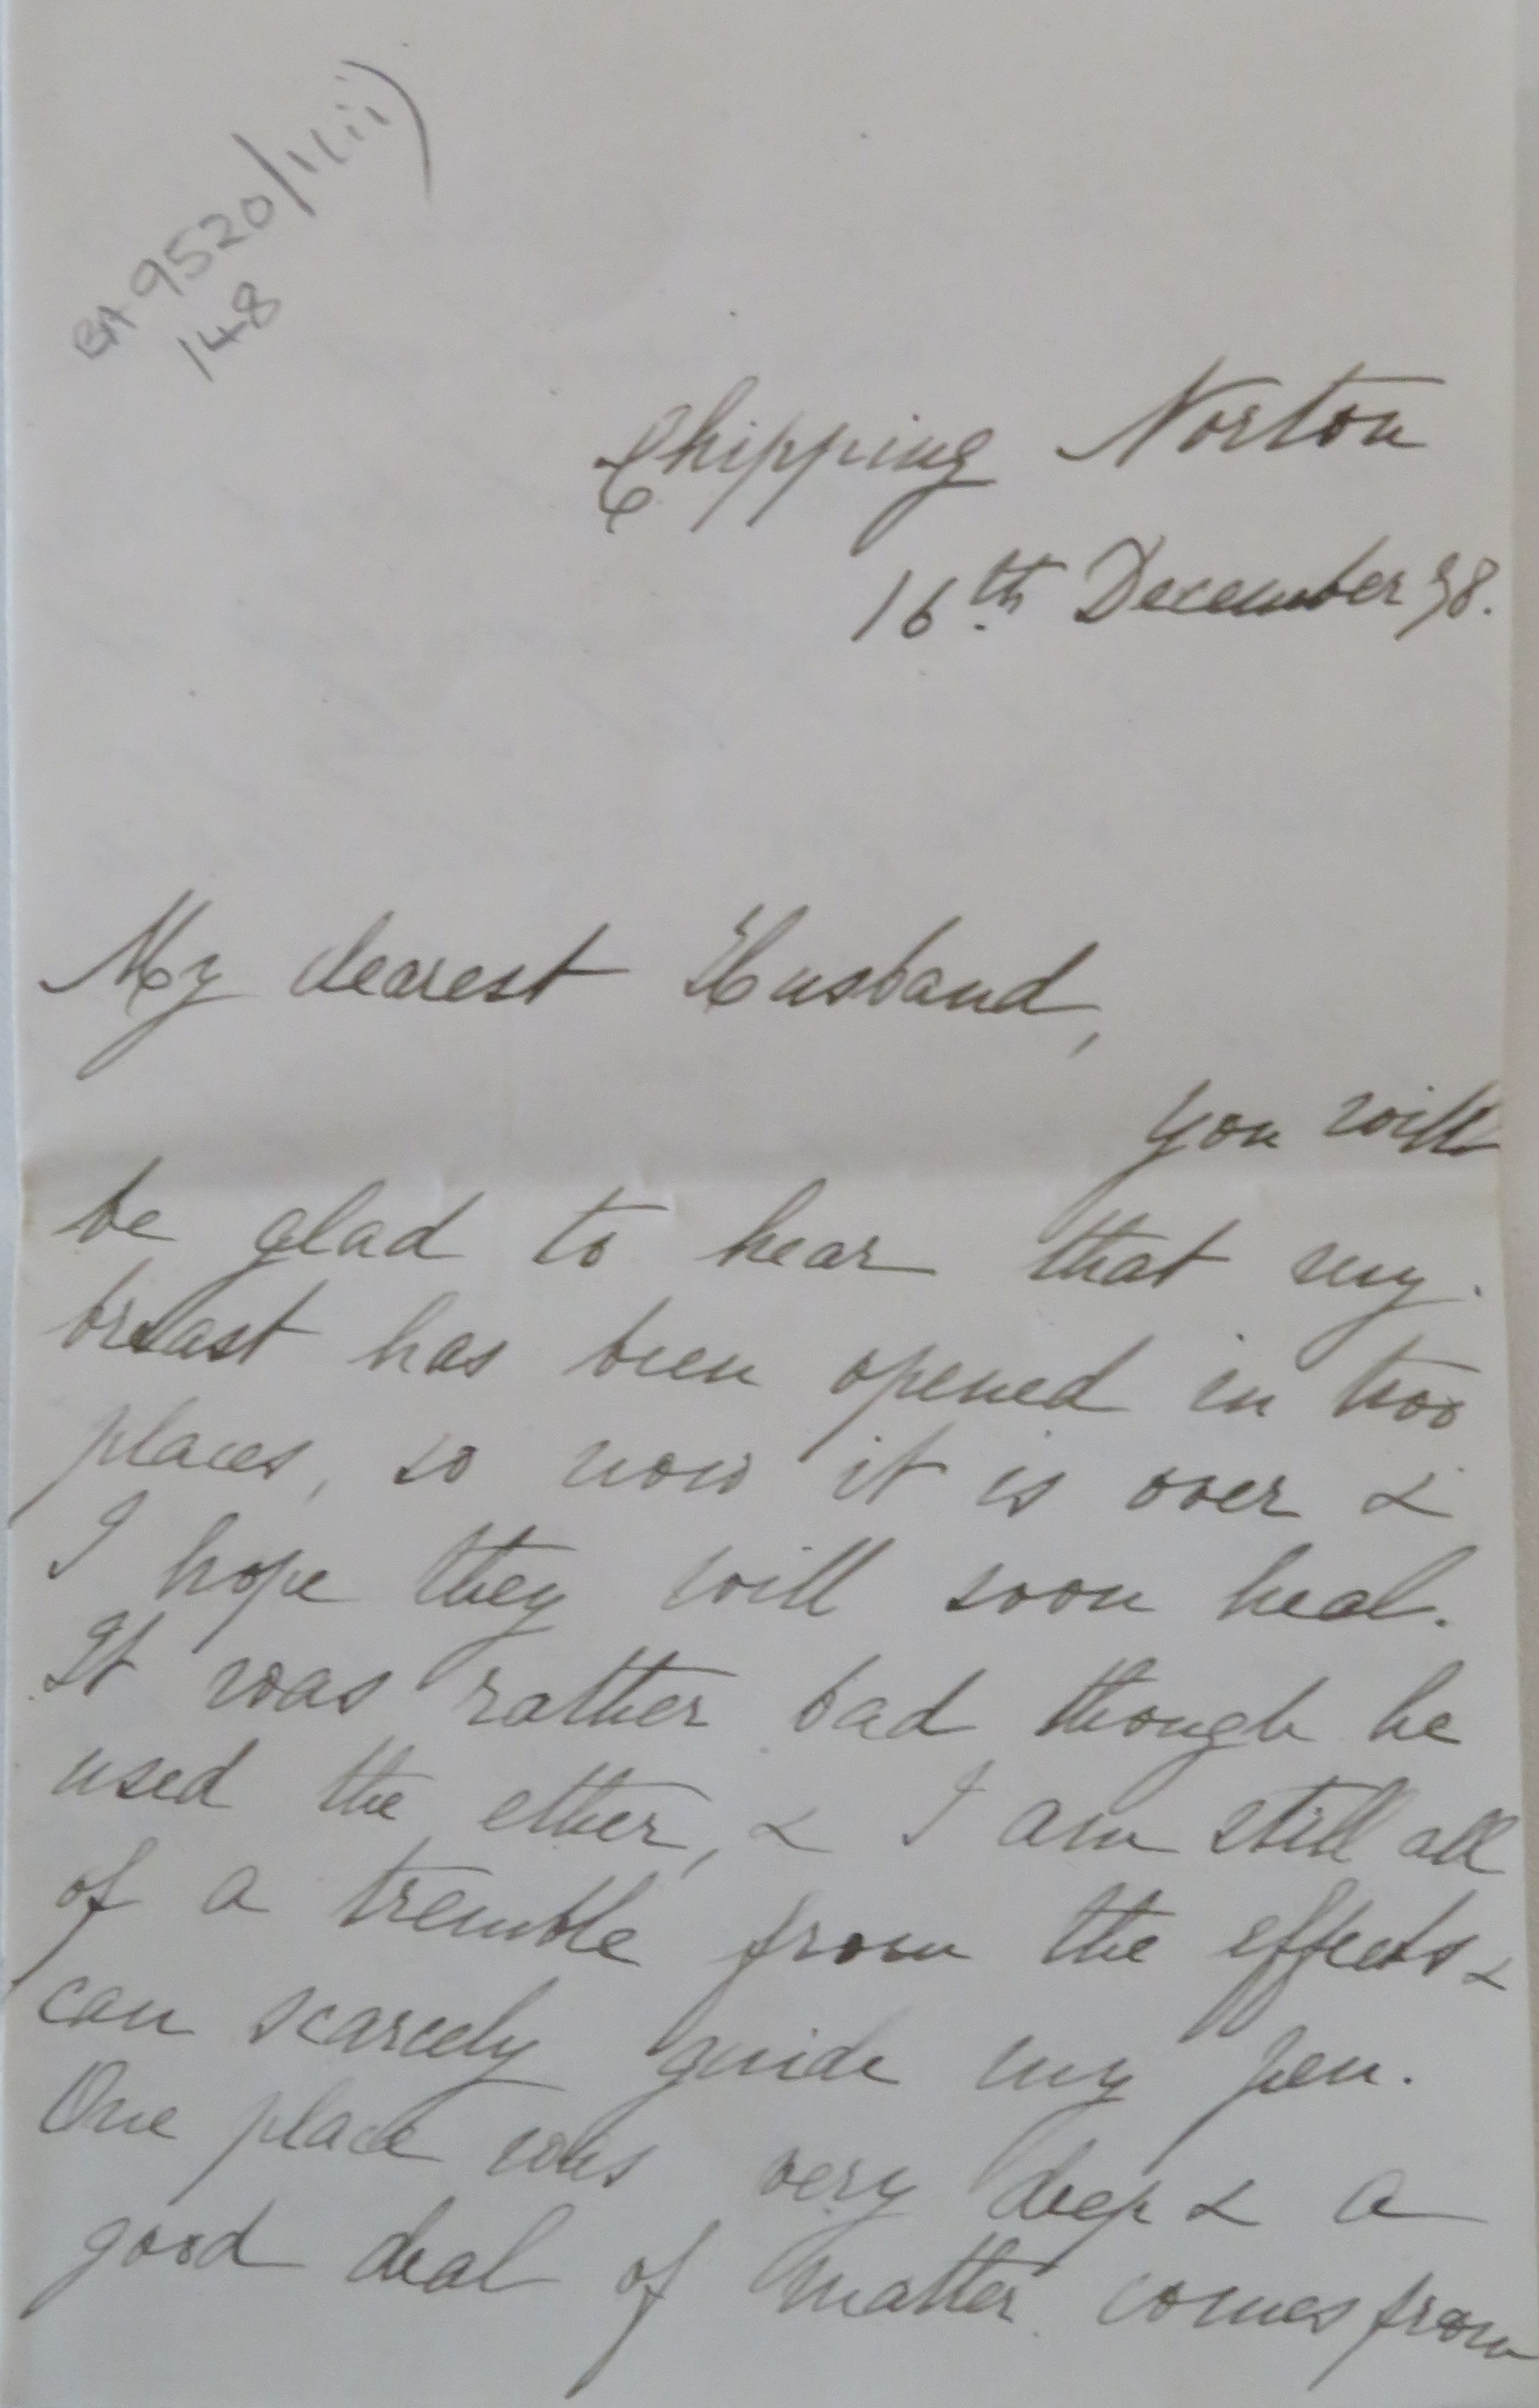 BA 9520/1(ii)
148
Chipping Norton
16th December 98.
My dearest Husband,
You will
be glad to hear that my
breast has been opened in two
places, so now it is over &
I hope they will soon heal.
It was rather bad though he
used the ether, & I am still all
of a tremble from the effects &
can scarcely guide my pen.
One place was very deep & a
good deal of matter comes from